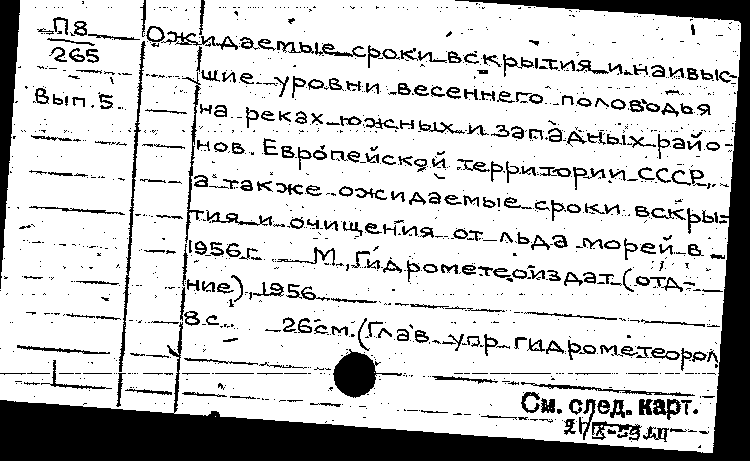 П8
265
Вып. 5
Ожидаемые сроки вскрытия и наивыс-
шие уровни весеннего половодья
на реках южных и западных райо-
нов. Европейской территории СССР,
а также ожидаемые сроки вскры-
тия и очищения от льда морей в
1956г. М., Гидрометеоиздат (отд-
ние), 1956
8 с. 26см. (Глав. упр. гидрометеорол
См. след. карт.